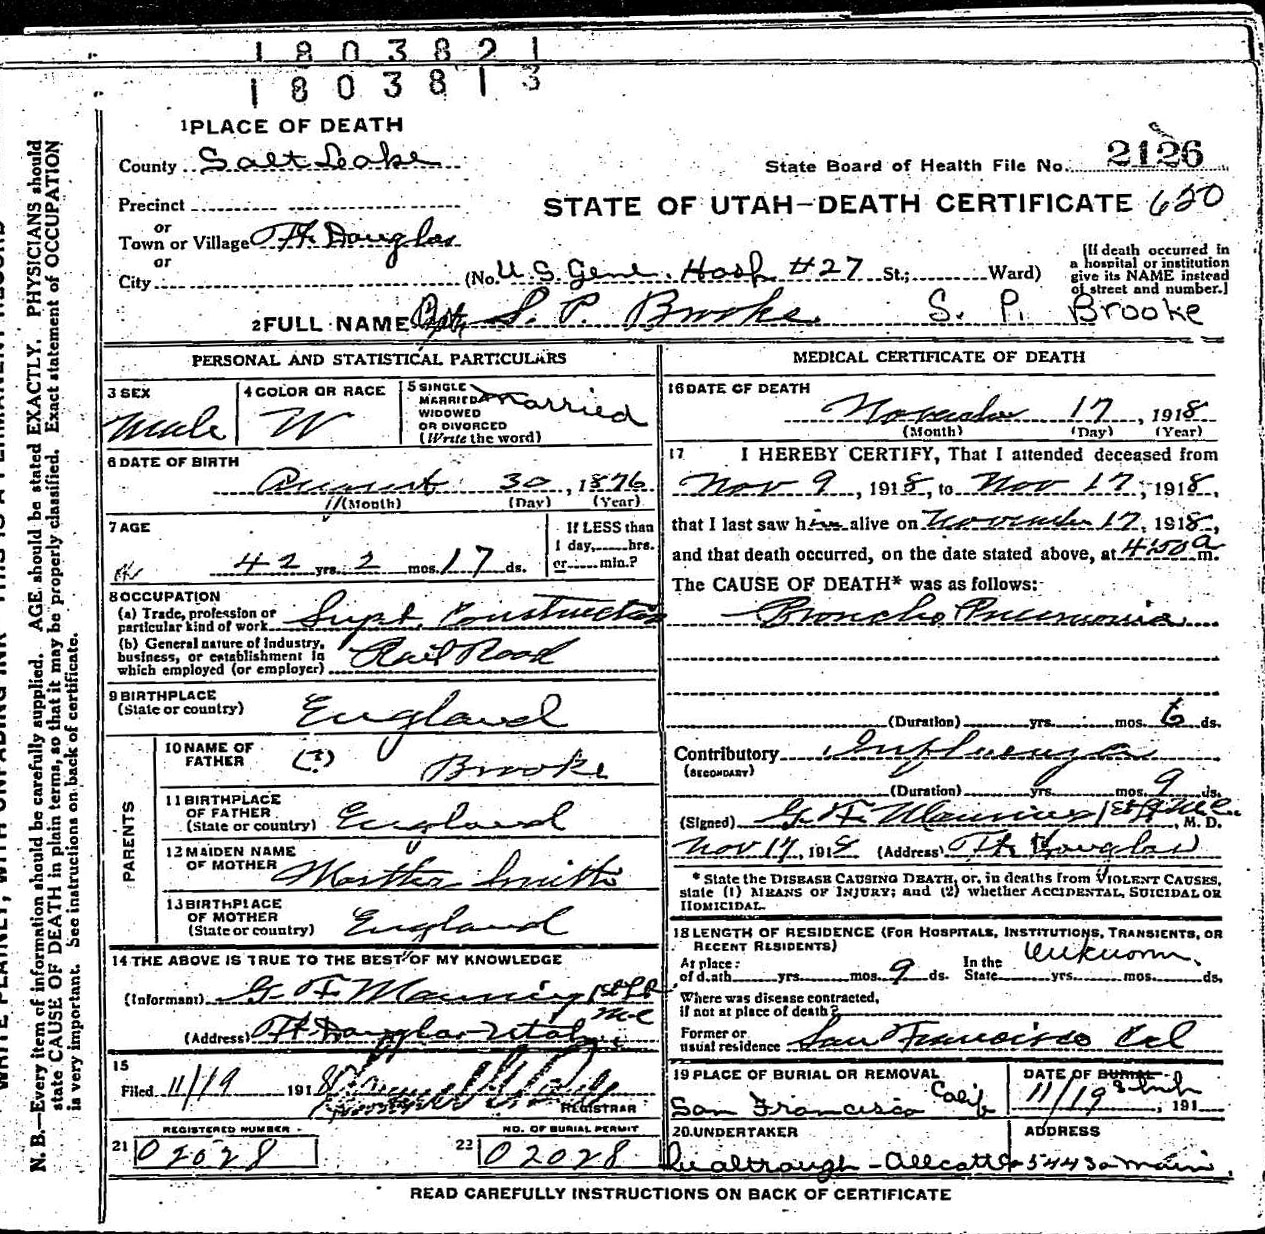 1803821
1803813
1 PLACE OF DEATH
County Salt Lake
State Board of Health File No. 2126
Precinct
STATE OF UTAH—DEATH CERTIFICATE 620
or
Town or Village Ft. Douglas
or
City (No. U.S. Genl. Hosp #27 St.; Ward)
[If death occurred in
a hospital or institution
give its NAME instead
of street and number.]
2 FULL NAME S. P. Brooke. S. P. Brooke
PERSONAL AND STATISTICAL PARTICULARS
3 SEX
Male
4 COLOR OR RACE
W
5 SINGLE
MARRIED
WIDOWED
OR DIVORCED
(Write the word)
Married
6 DATE OF BIRTH
August 30, 1876
(Month) (Day) (Year)
7 AGE
42 yrs. 2 mos. 17 ds.
If LESS than
1 day, hrs.
or min.?
8 OCCUPATION
(a) Trade, profession or
particular kind of work Supt. Construction
(b) General nature of industry,
business, or establishment in
which employed (or employer) Rail Road
9 BIRTHPLACE
(State or country) England
PARENTS
10 NAME OF
FATHER (?) Brooke
11 BIRTHPLACE
OF FATHER
(State or country) England
12 MAIDEN NAME
OF MOTHER Martha Smith
13 BIRTHPLACE
OF MOTHER
(State or country) England
14 THE ABOVE IS TRUE TO THE BEST OF MY KNOWLEDGE
(Informant) G. F. Manning 1st Lt
M.C.
(Address) Ft Douglas Utah
15
Filed 11/19 1918
REGISTRAR
REGISTERED NUMBER
21 02028
NO. OF BURIAL PERMIT
22 02028
MEDICAL CERTIFICATE OF DEATH
16 DATE OF DEATH
November 17, 1918
(Month) (Day) (Year)
17 I HEREBY CERTIFY, That I attended deceased from
Nov 9, 1918, to Nov 17, 1918,
that I last saw him alive on November 17, 1918,
and that death occurred, on the date stated above, at 4:50 a m.
The CAUSE OF DEATH* was as follows:
Broncho Pneumonia
(Duration) yrs. mos. 6 ds.
Contributory Influenza
(SECONDARY)
(Duration) yrs. mos. 9 ds.
(Signed) G. F. Manning 1st Lt M.C., M. D.
Nov 17, 1918 (Address) Ft Douglas
* State the DISEASE CAUSING DEATH, or, in deaths from VIOLENT CAUSES,
state (1) MEANS OF INJURY; and (2) whether ACCIDENTAL, SUICIDAL OR
HOMICIDAL.
18 LENGTH OF RESIDENCE (FOR HOSPITALS, INSTITUTIONS, TRANSIENTS, OR
RECENT RESIDENTS)
At place
of death yrs. mos. 9 ds. In the State yrs. mos. ds. Unknown.
Where was disease contracted,
if not at place of death?
Former or
usual residence San Francisco Cal
19 PLACE OF BURIAL OR REMOVAL
San Francisco Calif
DATE OF BURIAL
11/19, 191
20. UNDERTAKER
ADDRESS
READ CAREFULLY INSTRUCTIONS ON BACK OF CERTIFICATE
N. B.—Every item of information should be carefully supplied. AGE should be stated EXACTLY. PHYSICIANS should
state CAUSE OF DEATH in plain terms, so that it may be properly classified. Exact statement of OCCUPATION
is very important. See instructions on back of certificate.